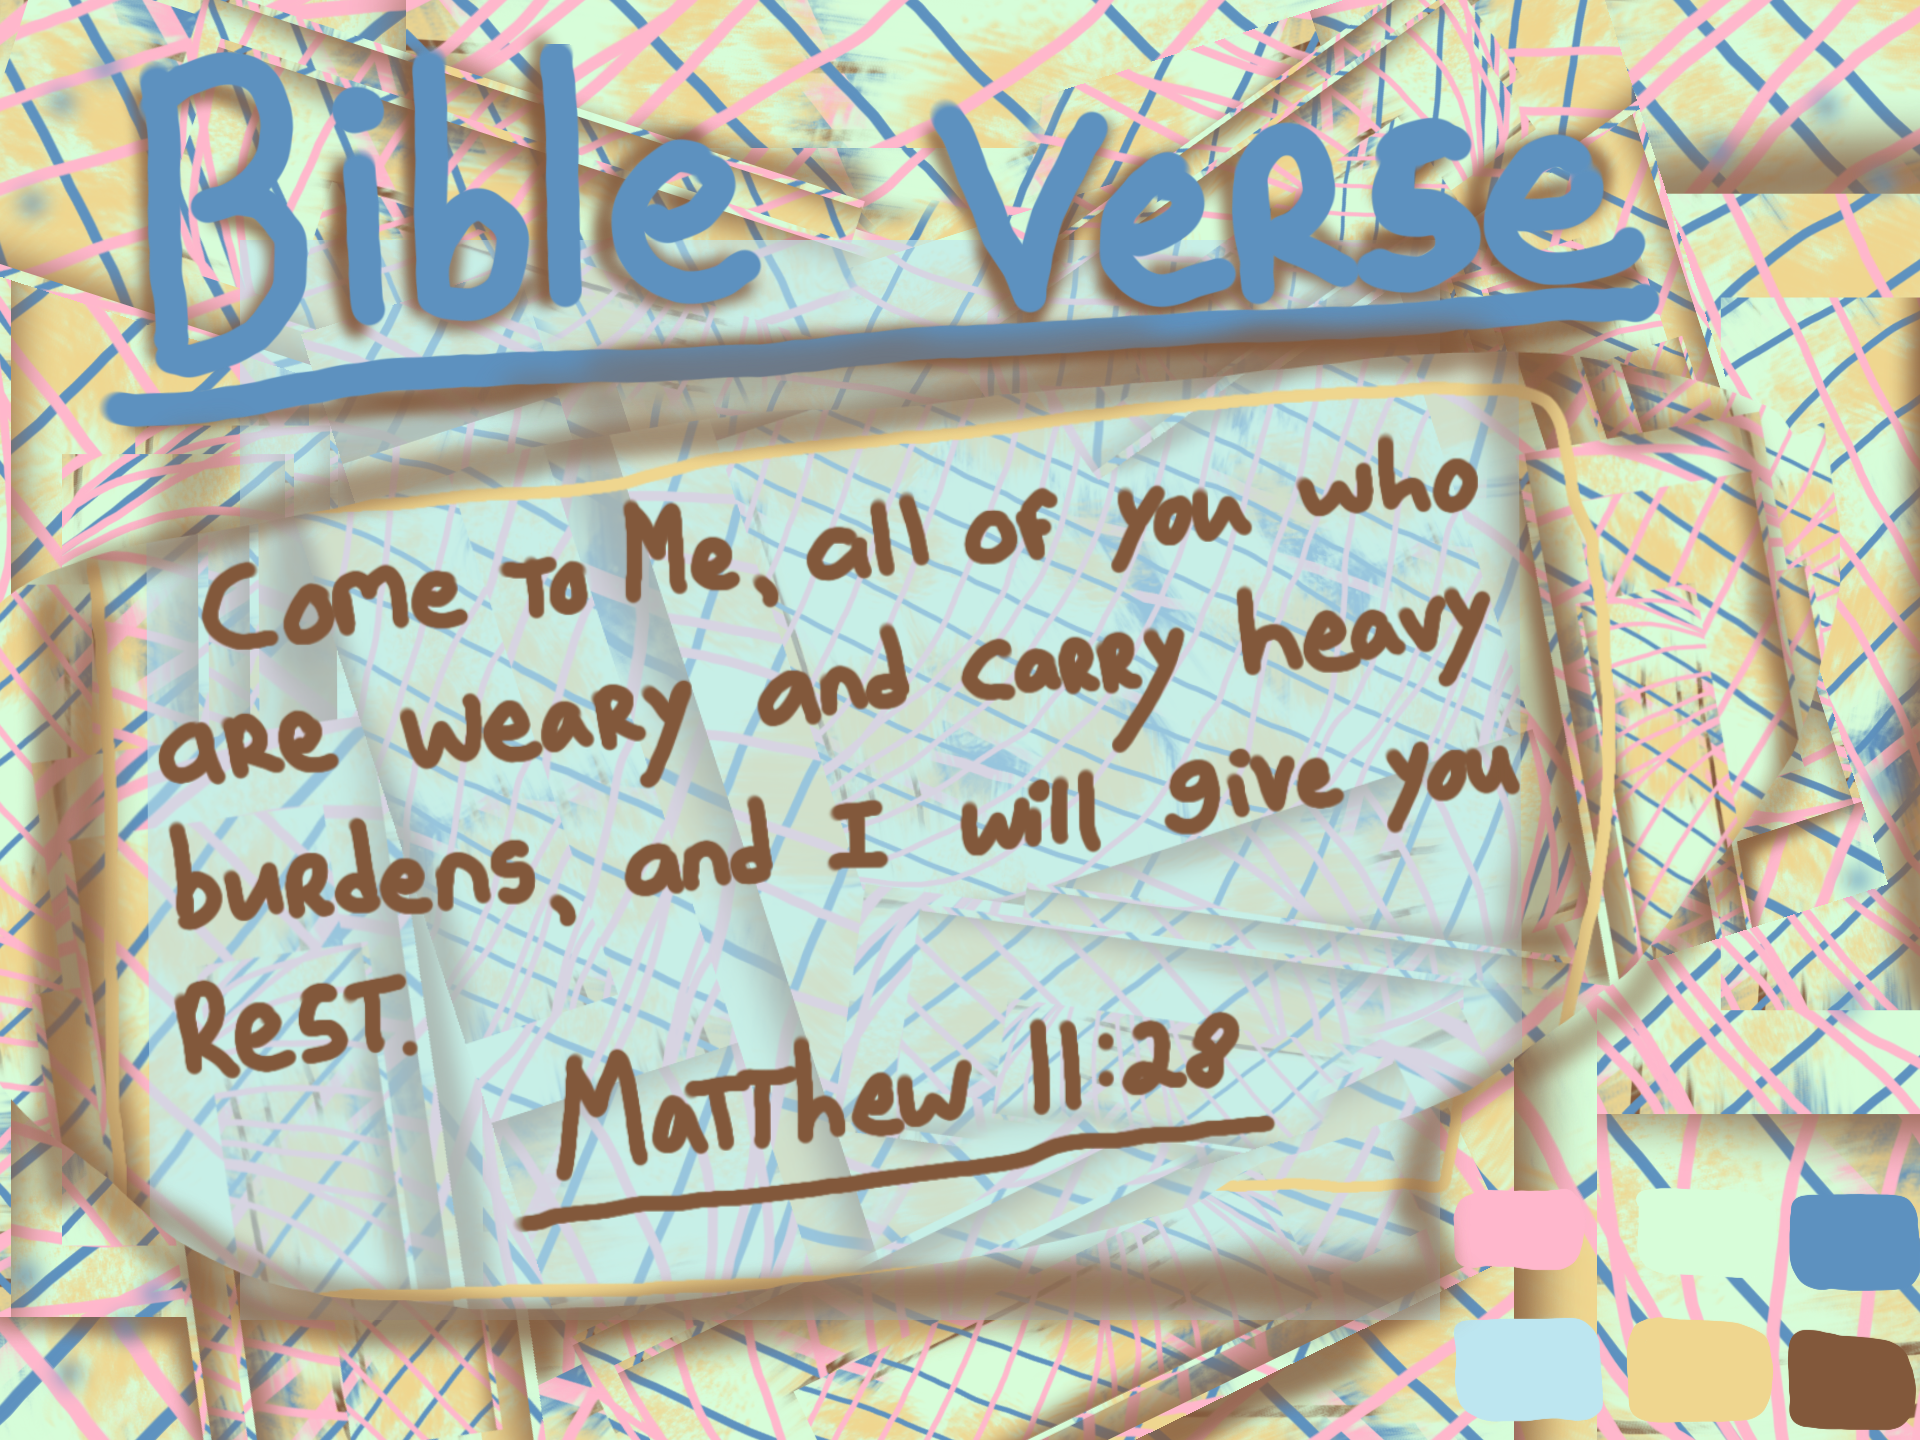 Bible Verse
Come to Me, all of you who
are weary and carry heavy
burdens, and I will give you
Rest.
Matthew 11:28